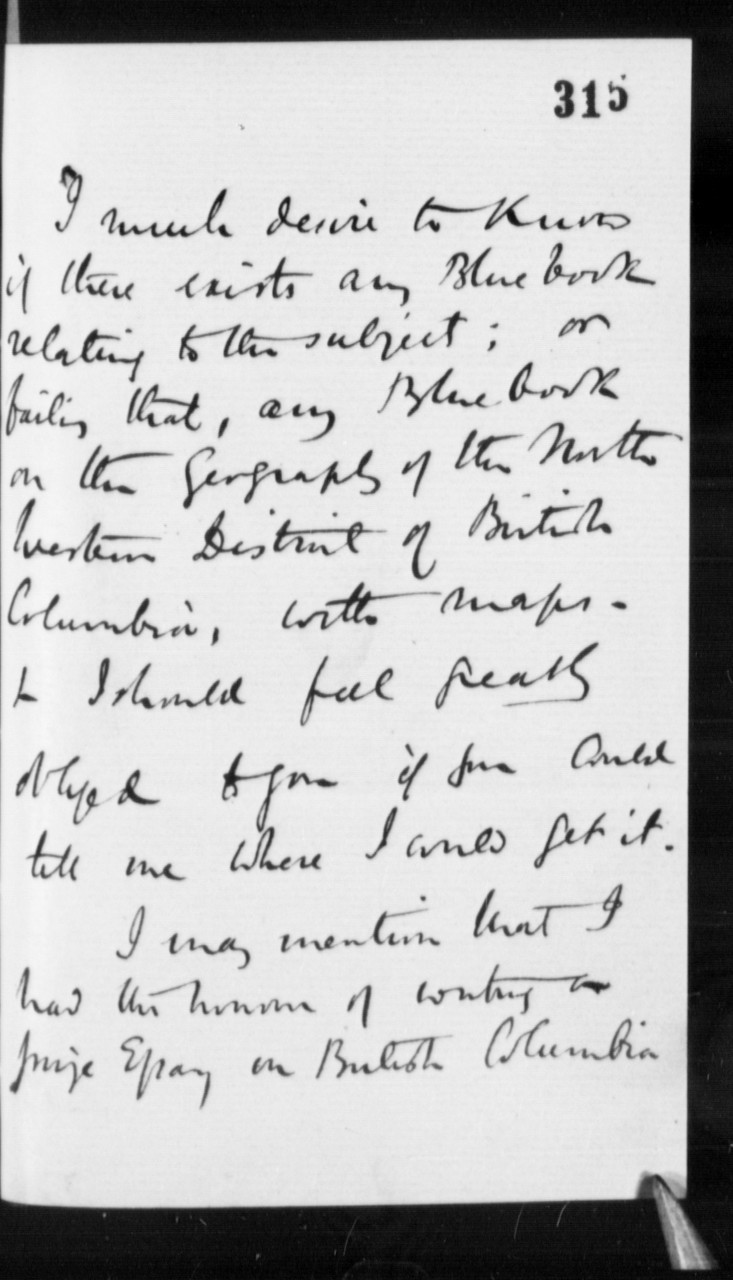 315
I much desire to know
if there exists any Blue book
relating to the subject; or
failing that, any Blue book
on the Geography of the North
Western District of British
Columbia, with maps.
& I should feel greatly
obliged to you if you could
tell me where I could get it.
I may mention that I
had the honour of writing a
prize Essay on British Columbia